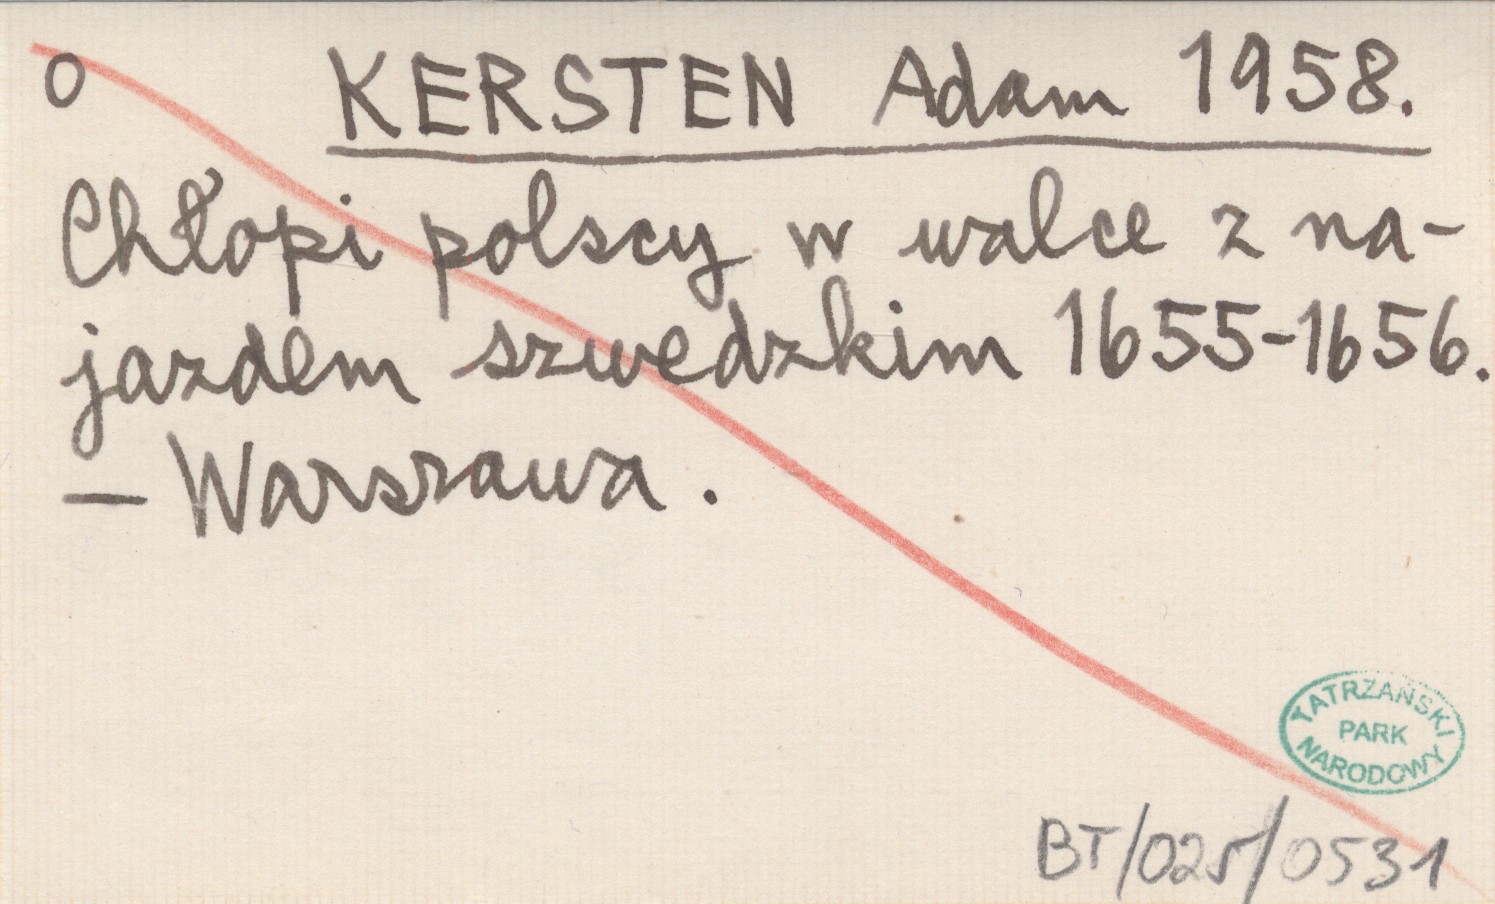 O KERSTEN Adam 1958.
Chłopi polscy w walce z na-
jazdem szwedzkim 1655-1656.
— Warszawa.
TATRZAŃSKI
PARK
NARODOWY
BT/025/0531